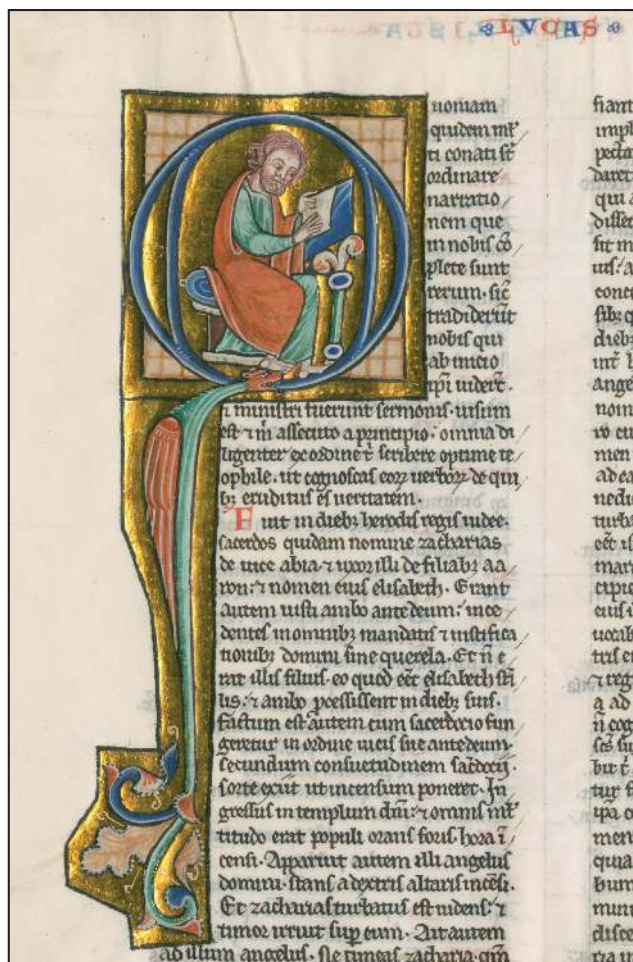 LVCAS
uoniam
quidem ml̅
ti conati st̅
ordinare
narratio
nem que
in nobis co̅
plete sunt
rerum. sic̅
tradiderut̅
nobis qui
ab inicio
ipi̅ uider̅t.
⁊ ministri fuerunt sermonis. uisum
est ⁊ m̅ assecuto a principio. omnia di
ligenter ex ordine t̅ scribere optime te
ophile. ut cognoscas eoꝝ uerboꝝ de qui
bꝫ eruditus es ueritatem.
Fuit in diebꝫ herodis regis iudee.
sacerdos quidam nomine zacharias
de uice abia. ⁊ uxor illi de filiabꝫ aa
ron. ⁊ nomen eius elisabeth. Erant
autem iusti ambo ante deum. ince
dentes in omnibꝫ mandatis ⁊ iustifica
tionibꝫ domini sine querela. Et n̅ e
rat illis filius. eo quod eet̅ elisabeth st̅i
lis. ⁊ ambo p̅cessissent in diebꝫ suis.
factum est autem cum sacerdocio fun
geretur in ordine uicis sue ante deum.
secundum consuetudinem sac̅docij.
sorte exiit ut incensum poneret. In
gressus in templum dn̅i. ⁊ omnis ml̅
titudo erat populi orans foris. hora i̅
censi. Apparuit autem illi angelus
domini. stans a dextris altarisince̅si.
Et zacharias turbatus est uidens. ⁊
timor irruit sup̅ eum. Ait autem
ad illum angelus. Ne timeas zacharia. qm̅
fiant
daret
qui a
fit m
angel
nom
men
ad ea
turba
mari
eius i
uocab
⁊ reg
tur f
men
quia
bum
disce